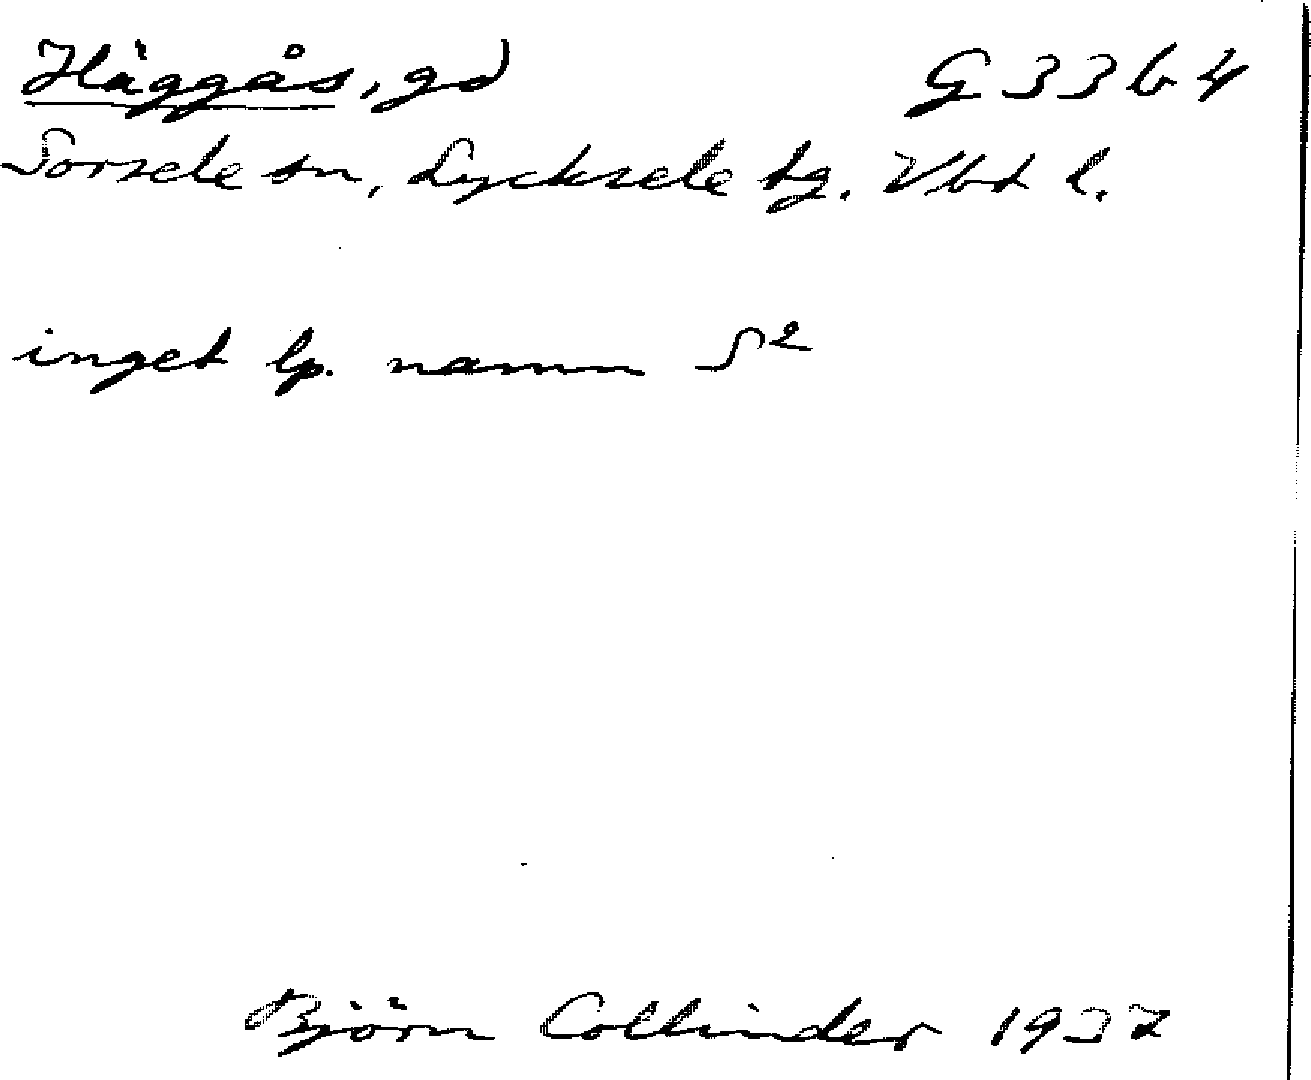 Häggås, gd G 33 b 4
Sorsele sn, Lycksele tg. Vbt l.
inget lp. namn S²
Björn Collinder 1937